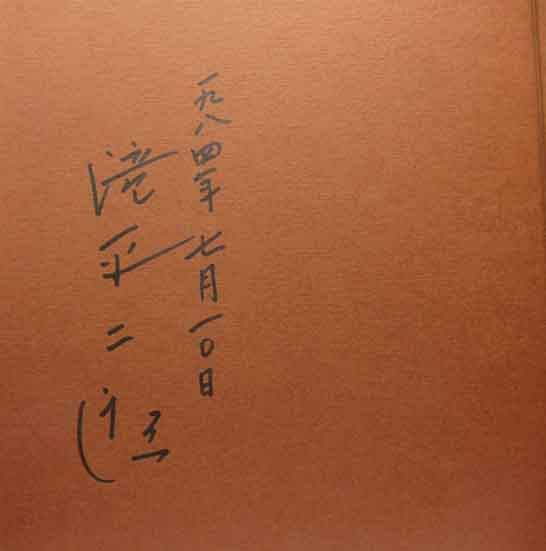 一九八四年七月一〇日
滝平二郎